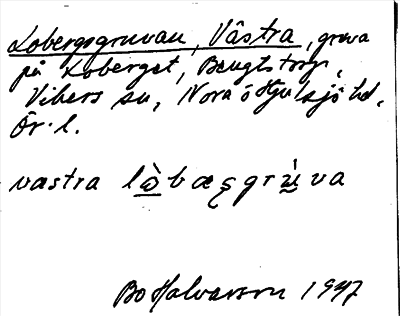 Lobergsgruvan, Västra, gruva
på Loberget, Bengtstorp,
Vikers sn, Nora o Hjulsjö hd,
Ör. l.
vastra lòbæsgrùva
Bo Halvarson 1947